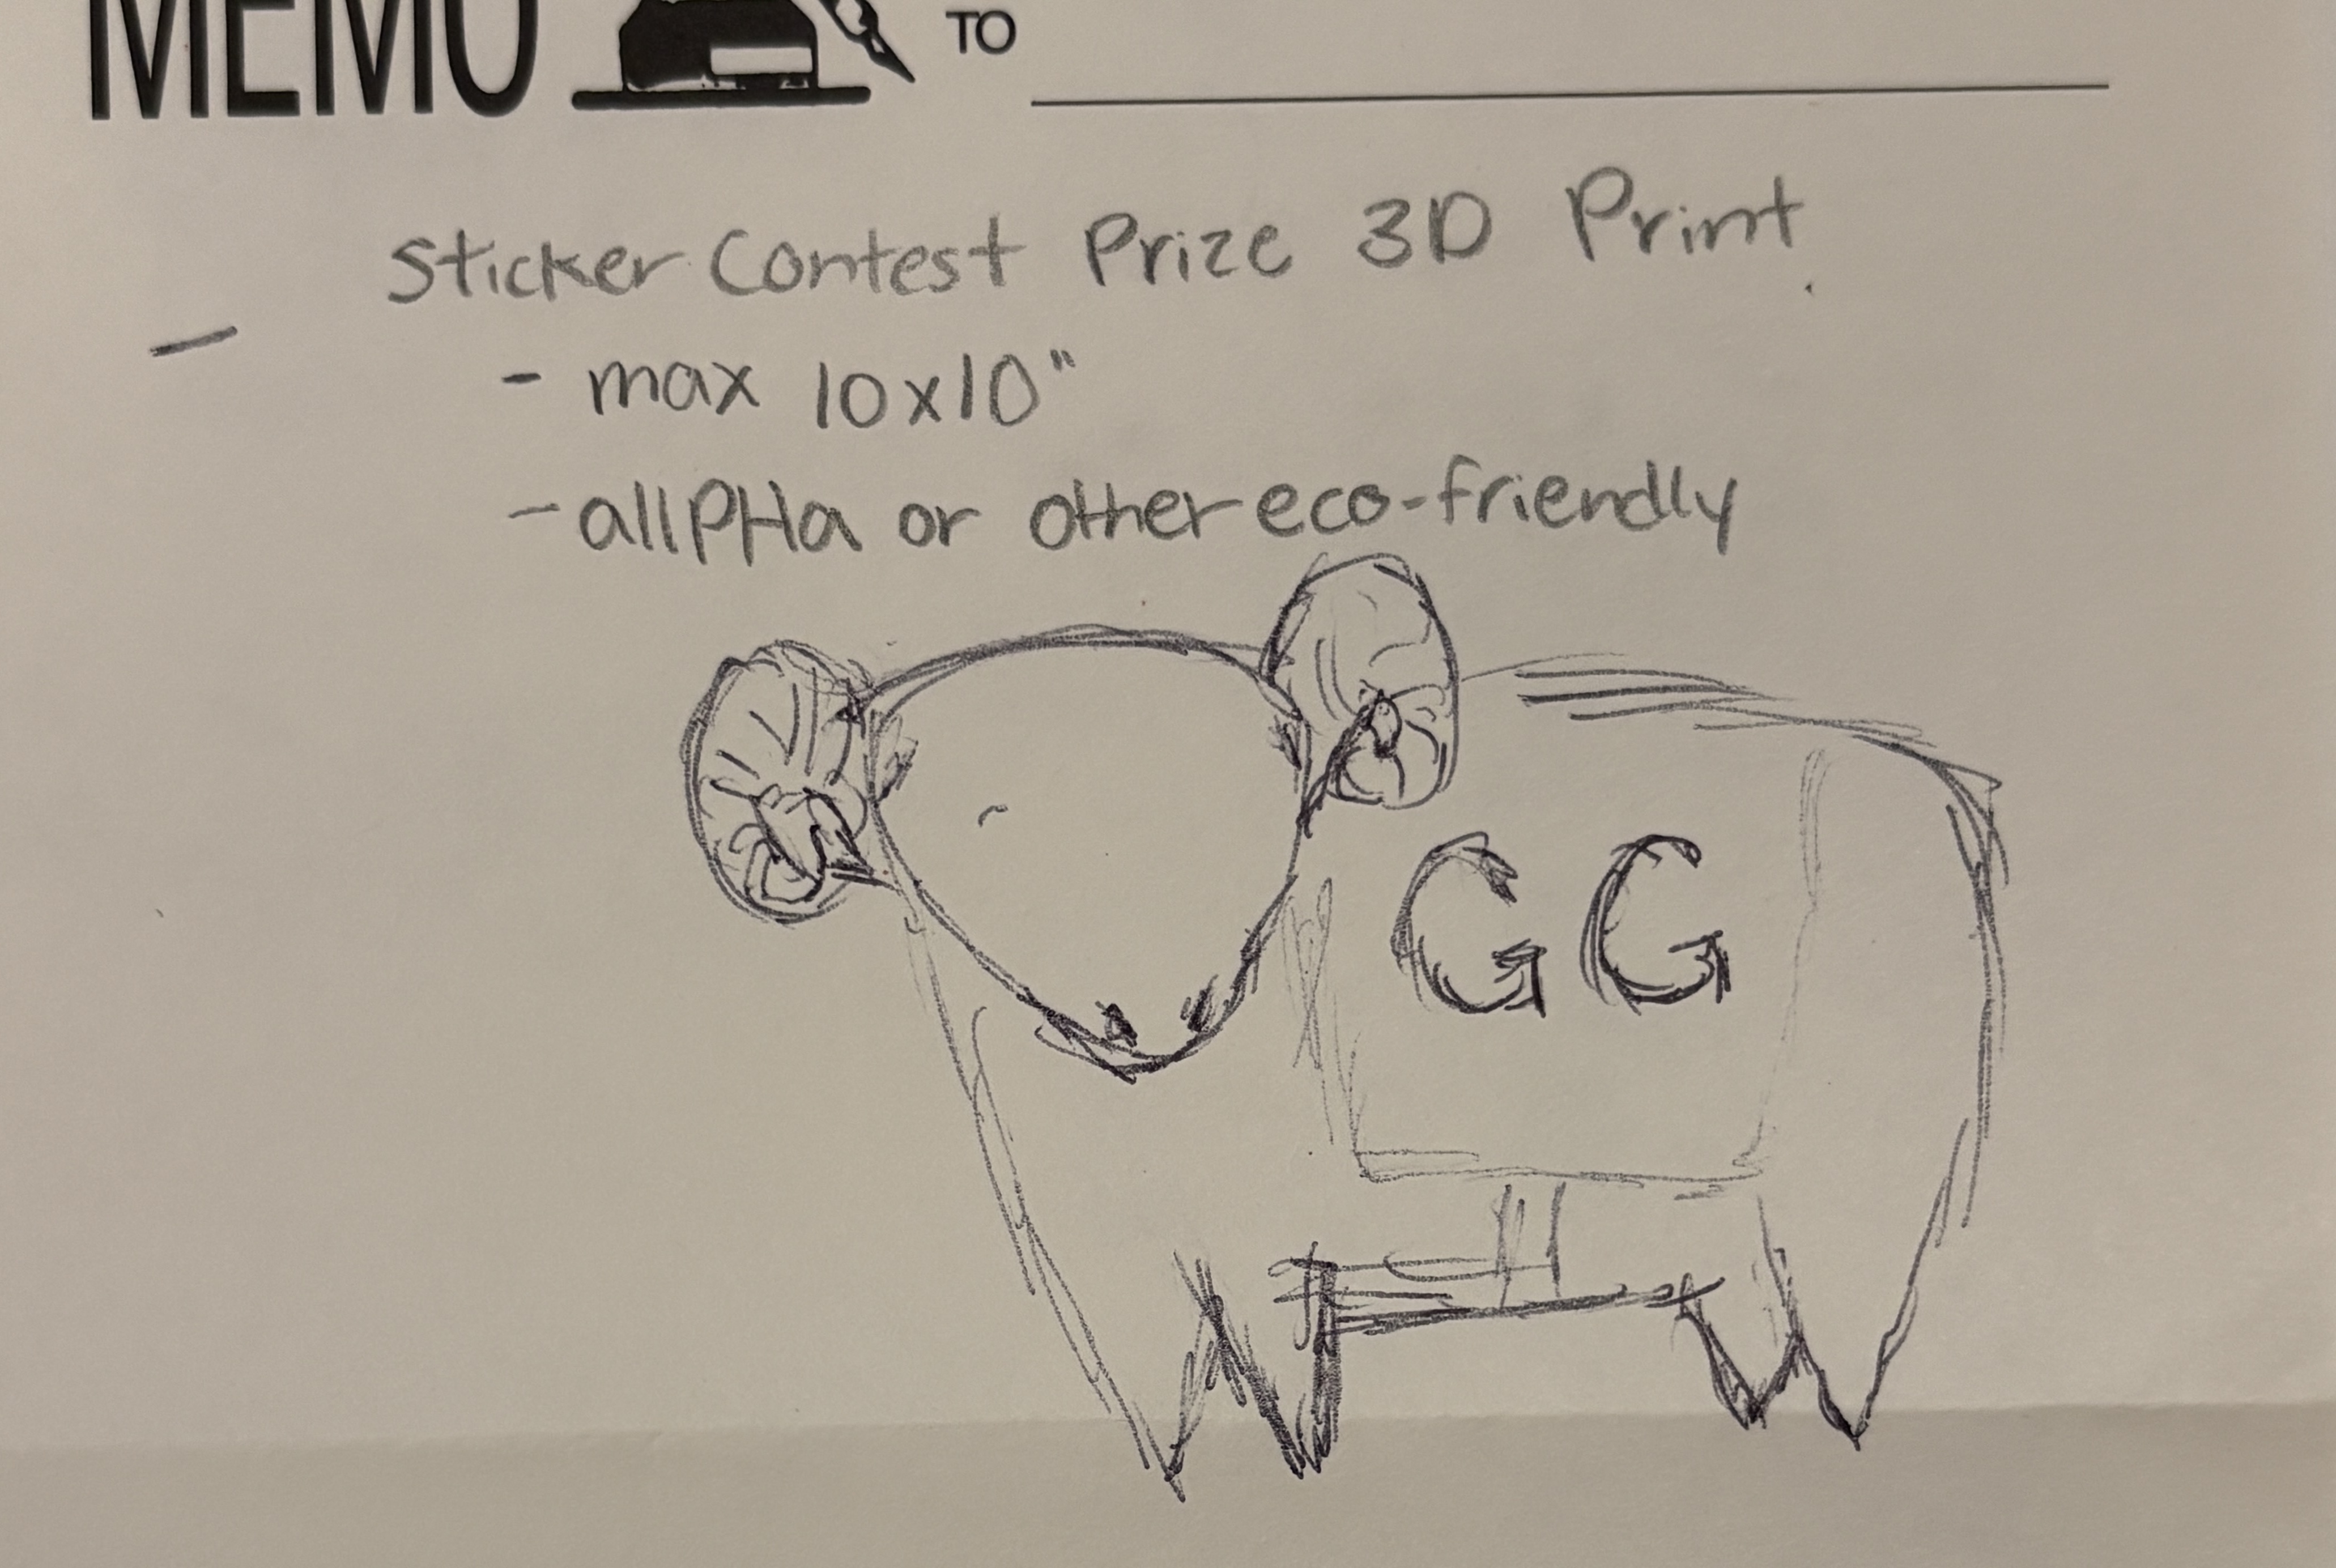 MEMO TO
Sticker Contest Prize 3D Print
- max 10x10"
- allPHa or other eco-friendly
GG